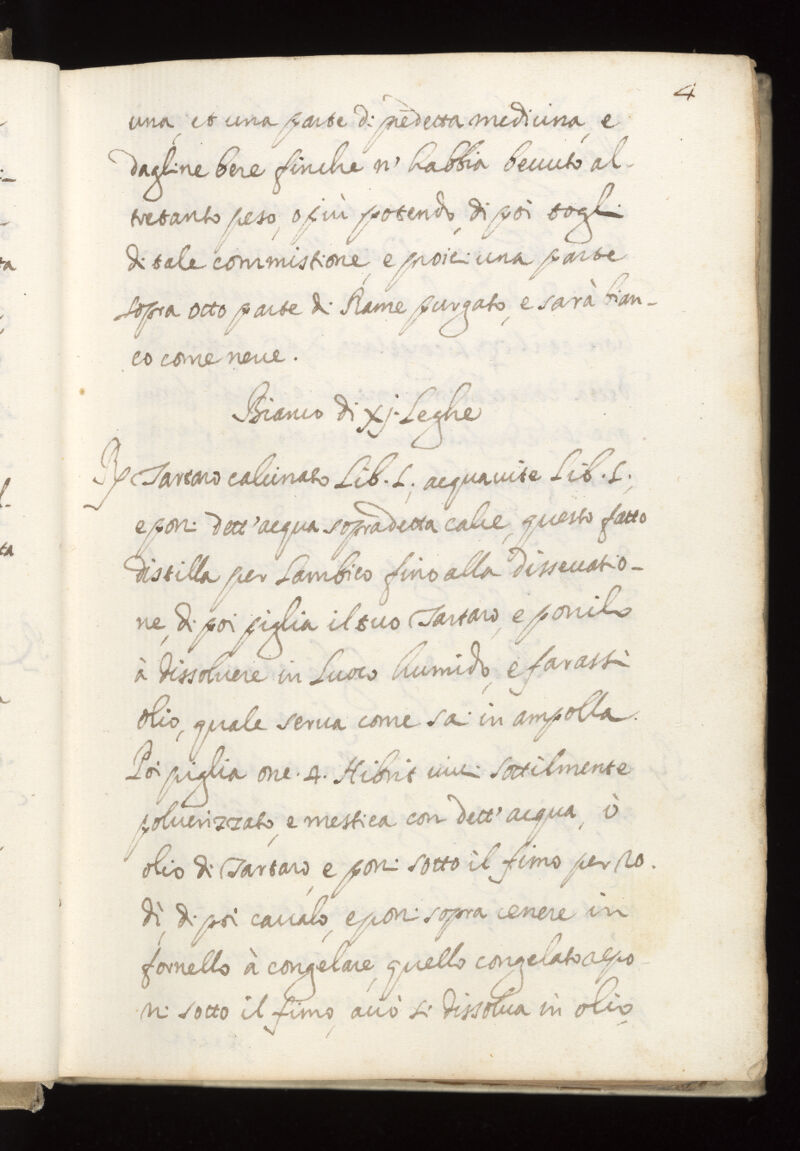 4
una, et una parte di p̄detta medicina, e
dagline bere finche n' habbia bevuto al-
tretanto peso, o più potendo, di poi togli
di tale commistione, e proici una parte
sopra otto parte di Rame purgato, e sarà bian-
co come neve.
Bianco di xj. Leghe
℞ Tartaro calcinato Lib. L; acquavite Lib. L;
e poni dett' acqua sopra detta calce, questo fatto
distilla per Lambico fino alla dissecatio-
ne, di poi piglia il tuo Tartaro, e ponilo
à dissolvere in Luoco humido, e farassi
olio, quale serva come sai in ampolla.
Poi piglia onc. 4. Hibrit vivi sottilmente
polverizzato, e mestica con dett' acqua, ò
olio di Tartaro, e poni sotto il fimo per 20.
dì, di poi cavalo, e poni sopra cenere in
fornello à congelare, quello congelato repo-
ni sotto il fimo, acciò si dissolva in olio,